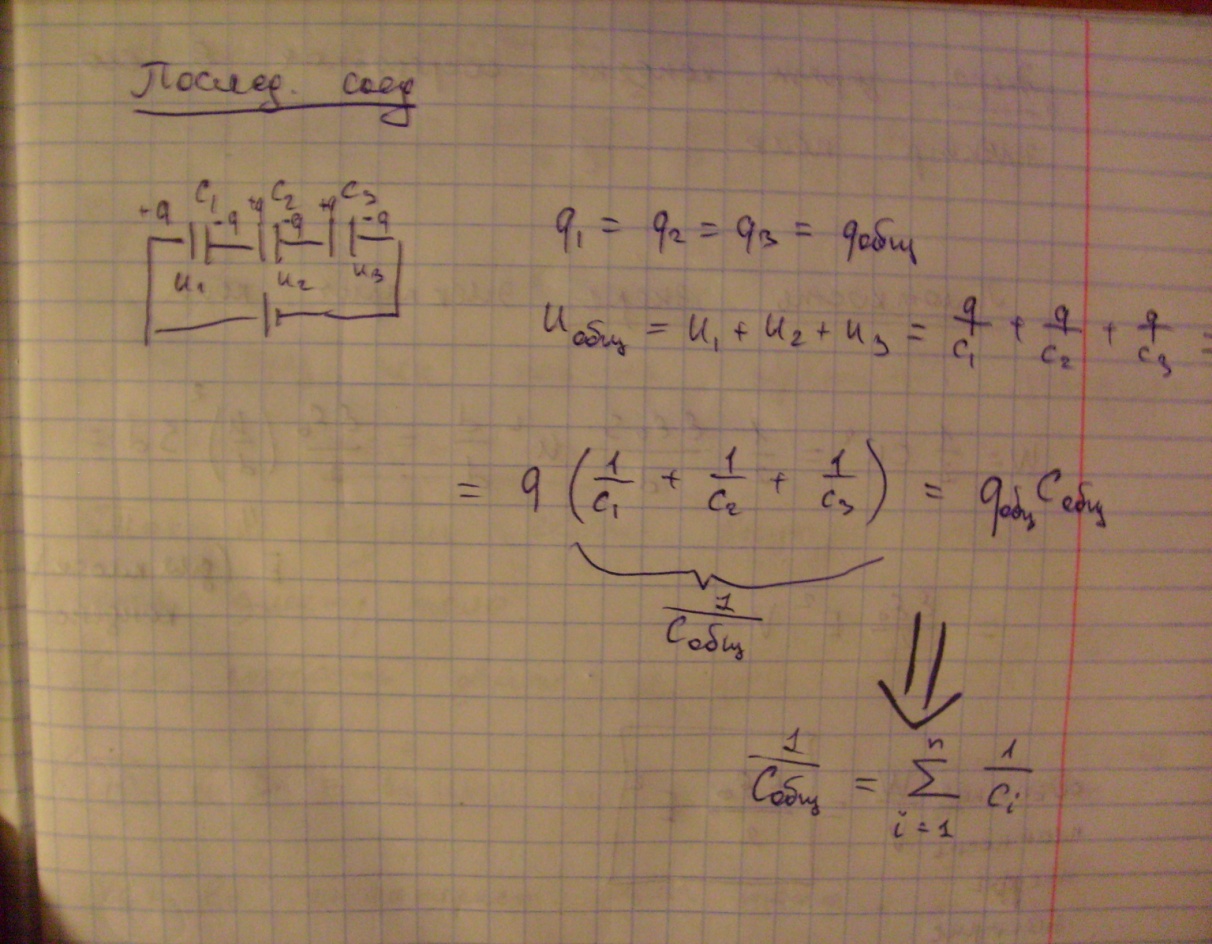 Послед. соед
+q C₁ -q +q C₂ -q +q C₃ -q
U₁ U₂ U₃
q₁ = q₂ = q₃ = qобщ
Uобщ = U₁ + U₂ + U₃ = q/C₁ + q/C₂ + q/C₃ =
= q (1/C₁ + 1/C₂ + 1/C₃) = qобщ Cобщ
1/Cобщ
⇓
1/Cобщ = ∑ⁿᵢ₌₁ 1/Cᵢ